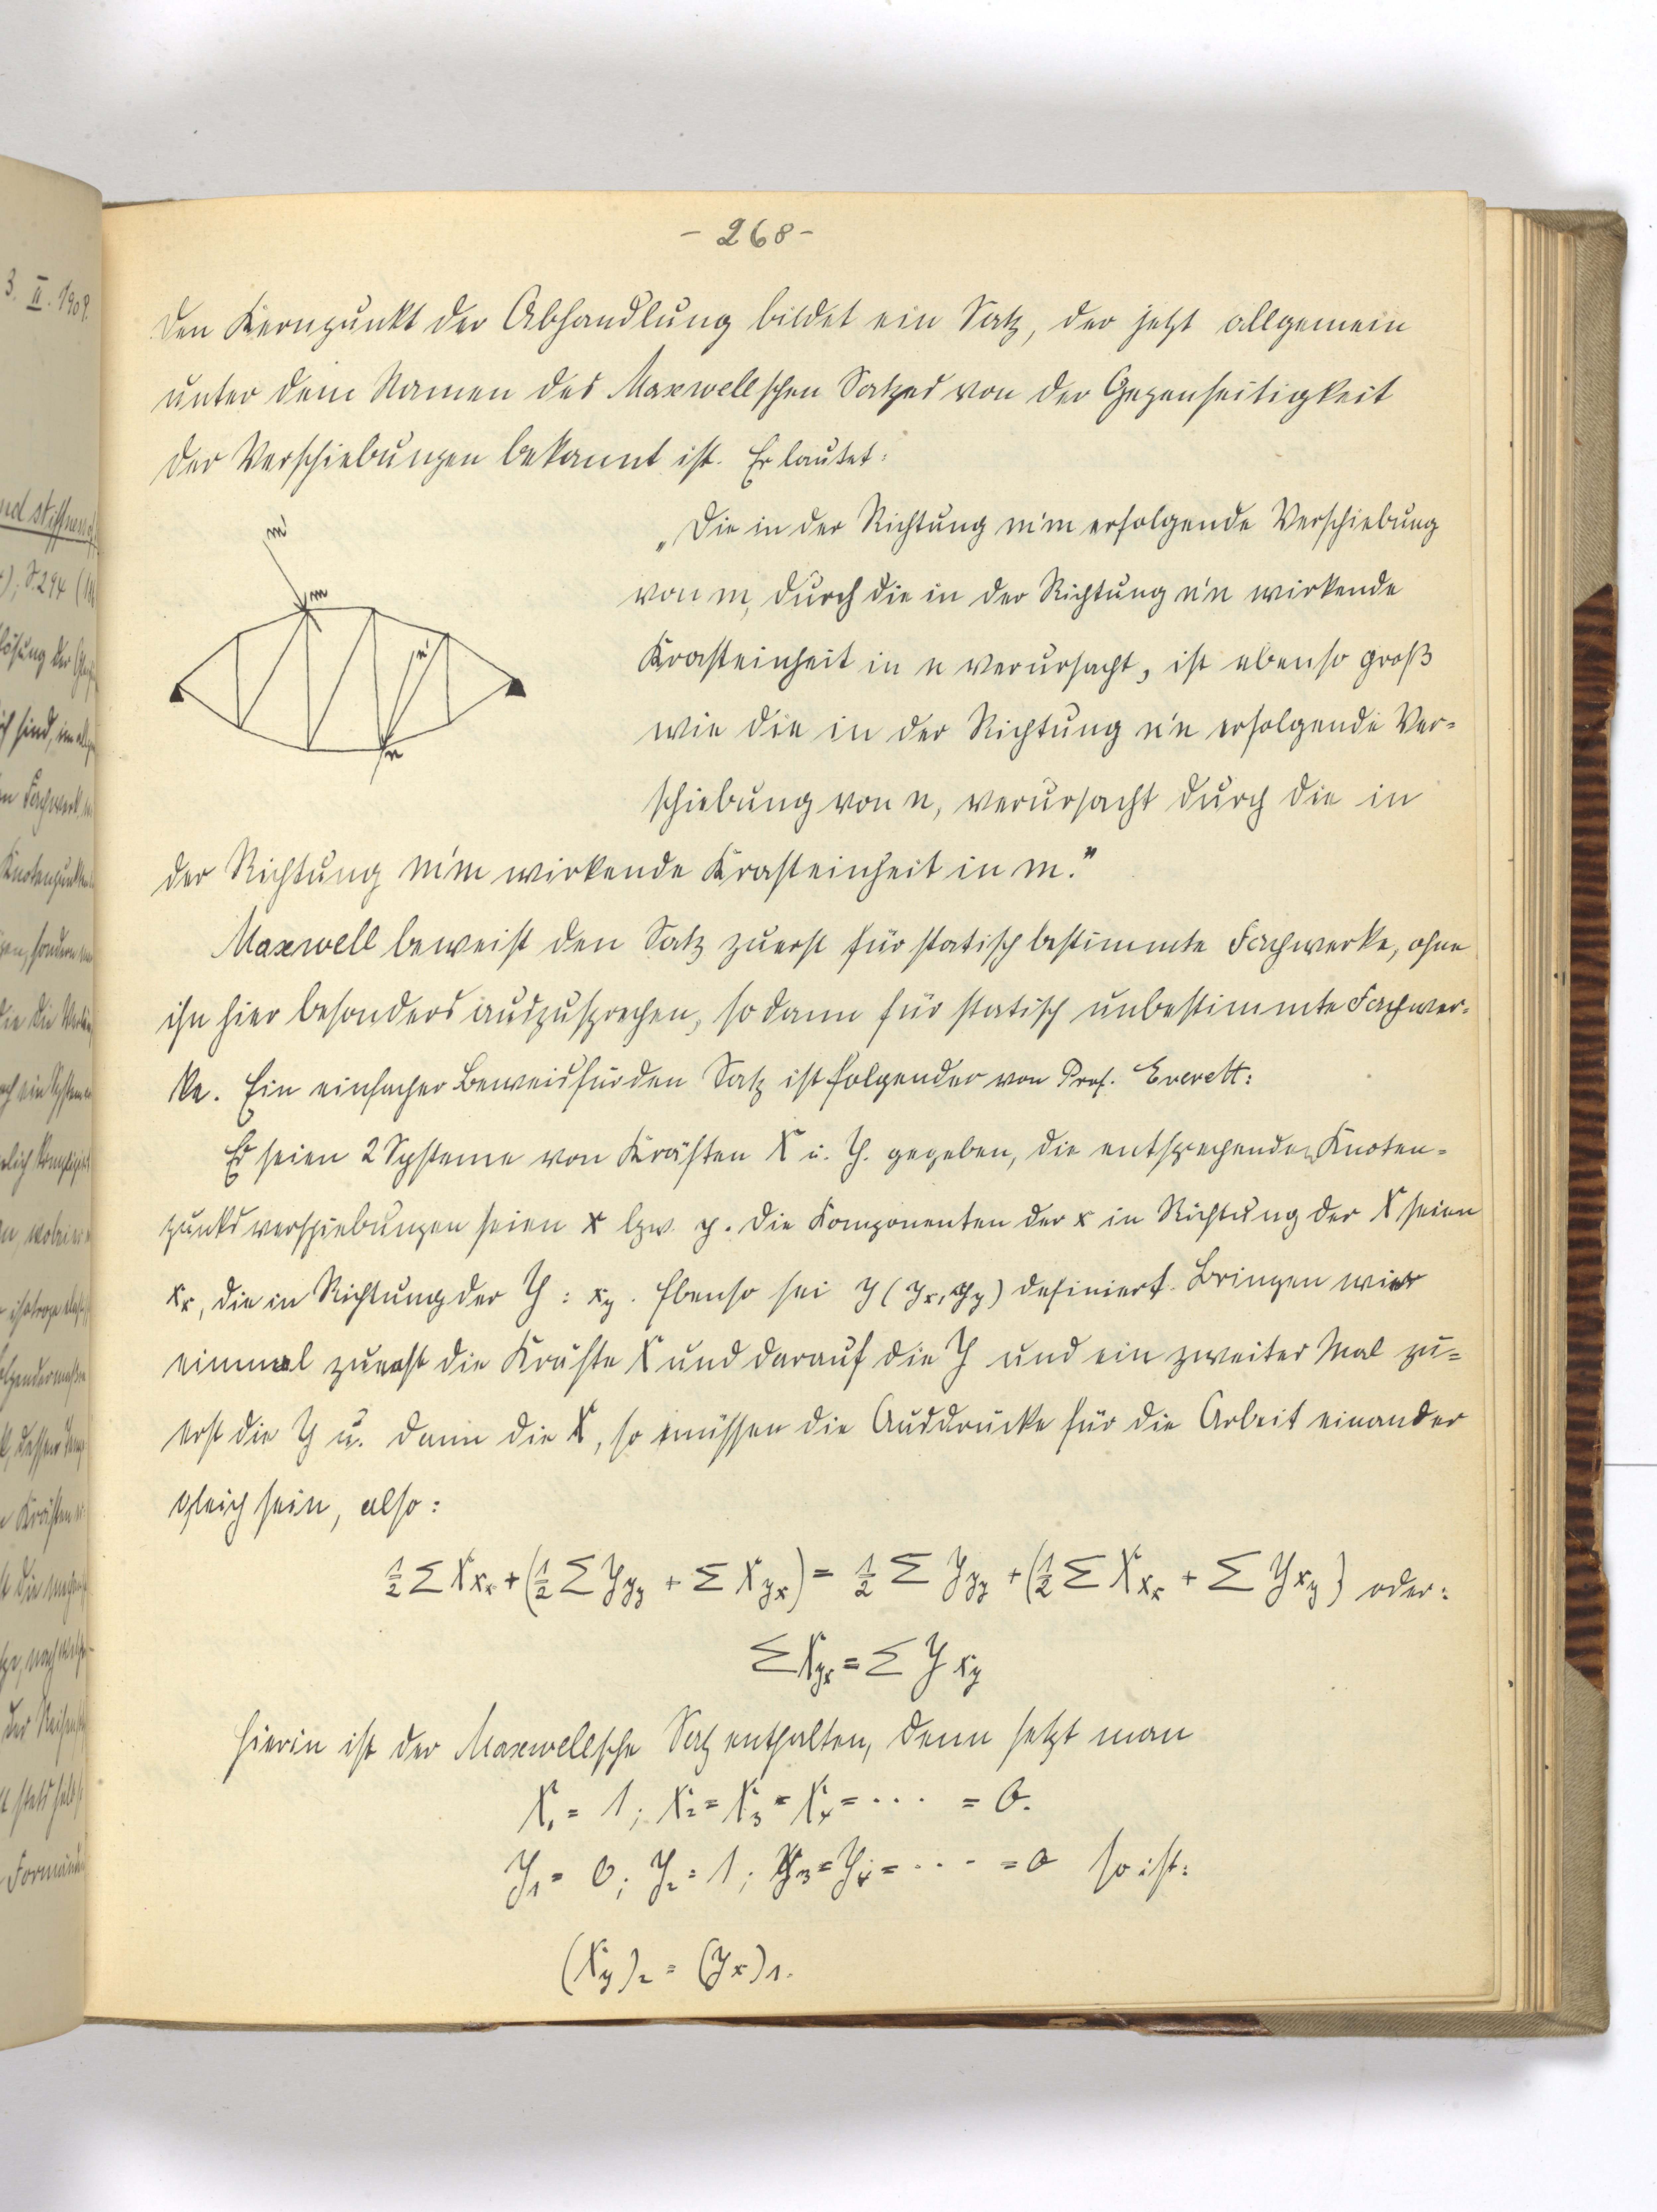 - 268 -
3. II. 1909.
Den Kernpunkt der Abhandlung bildet ein Satz, der jetzt allgemein
unter dem Namen des Maxwellschen Satzes von der Gegenseitigkeit
der Verschiebungen bekannt ist. Er lautet:
m'
m
n'
n
„Die in der Richtung m'm erfolgende Verschiebung
von m, durch die in der Richtung n'n wirkende
Krafteinheit in n verursacht, ist ebenso groß
wie die in der Richtung n'n erfolgende Ver=
schiebung von n, verursacht durch die in
der Richtung m'm wirkende Krafteinheit in m."
Maxwell beweist den Satz zuerst für statisch bestimmte Fachwerke, ohne
ihn hier besonders auszusprechen, sodann für statisch unbestimmte Fachwer=
ke. Ein einfacher Beweis für den Satz ist folgender von Prof. Everett:
Es seien 2 Systeme von Kräften X u. Y. gegeben, die entsprechenden Knoten=
punktsverschiebungen seien x bzw. y. Die Komponenten der x in Richtung der X seien
x_x, die in Richtung der Y : x_y. Ebenso sei y (y_x, y_y) definiert. Bringen wir
einmal zuerst die Kräfte X und darauf die Y und ein zweiter Mal zu=
erst die Y u. dann die X, so müssen die Ausdrücke für die Arbeit einander
gleich sein, also:
½ Σ X x_x + (½ Σ Y y_y + Σ X y_x) = ½ Σ Y y_y + (½ Σ X x_x + Σ Y x_y) oder:
Σ X y_x = Σ Y x_y
Hierin ist der Maxwellsche Satz enthalten, denn setzt man
X₁ = 1; X₂ = X₃ = X₄ = · · · = 0.
Y₁ = 0; Y₂ = 1; Y₃ = Y₄ = · · · = 0 so ist:
(x_y)₂ = (y_x)₁.